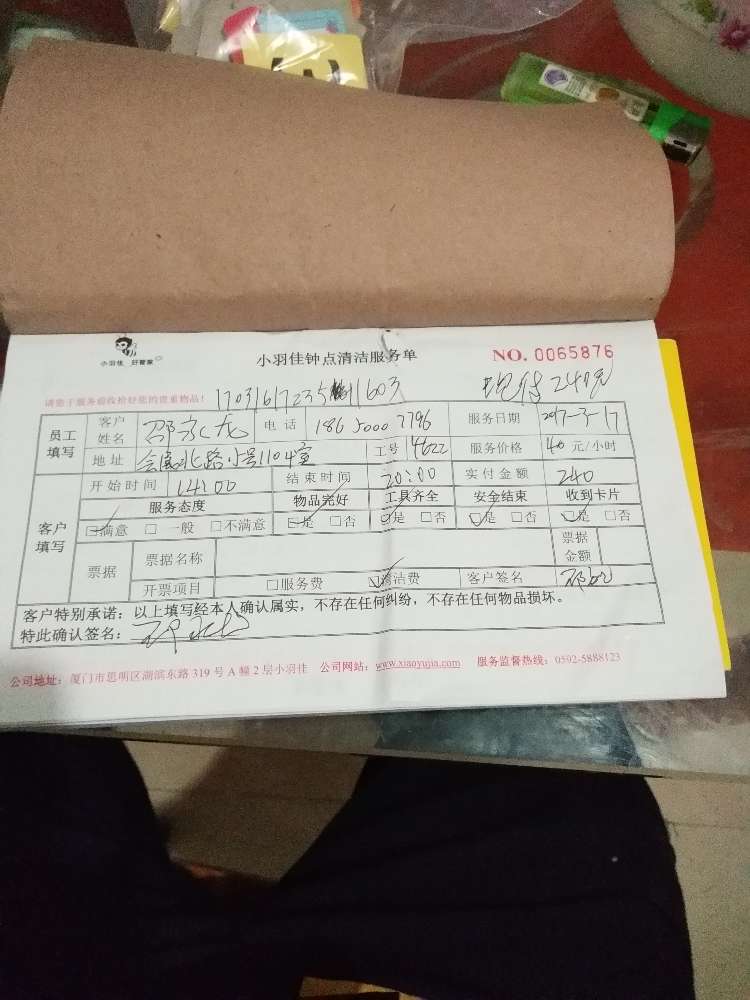 小羽佳 好管家
小羽佳钟点清洁服务单
NO. 0065876
请您于服务前收拾好您的贵重物品！
现付240元
员工填写
客户姓名 邵永龙 电话 186 5000 7796 服务日期 2017-3-17
地址 会展北路 号1104室 工号 4622 服务价格 40 元/小时
客户填写
开始时间 14:00 结束时间 20:00 实付金额 240
服务态度 物品完好 工具齐全 安全结束 收到卡片
☑满意 □一般 □不满意 ☑是 □否 ☑是 □否 ☑是 □否 ☑是 □否
票据 票据名称 票据金额
开票项目 □服务费 ☑清洁费 客户签名
客户特别承诺：以上填写经本人确认属实，不存在任何纠纷，不存在任何物品损坏。
特此确认签名：
公司地址：厦门市思明区湖滨东路 319 号 A 幢 2 层小羽佳 公司网站：www.xiaoyujia.com 服务监督热线：0592-5888123